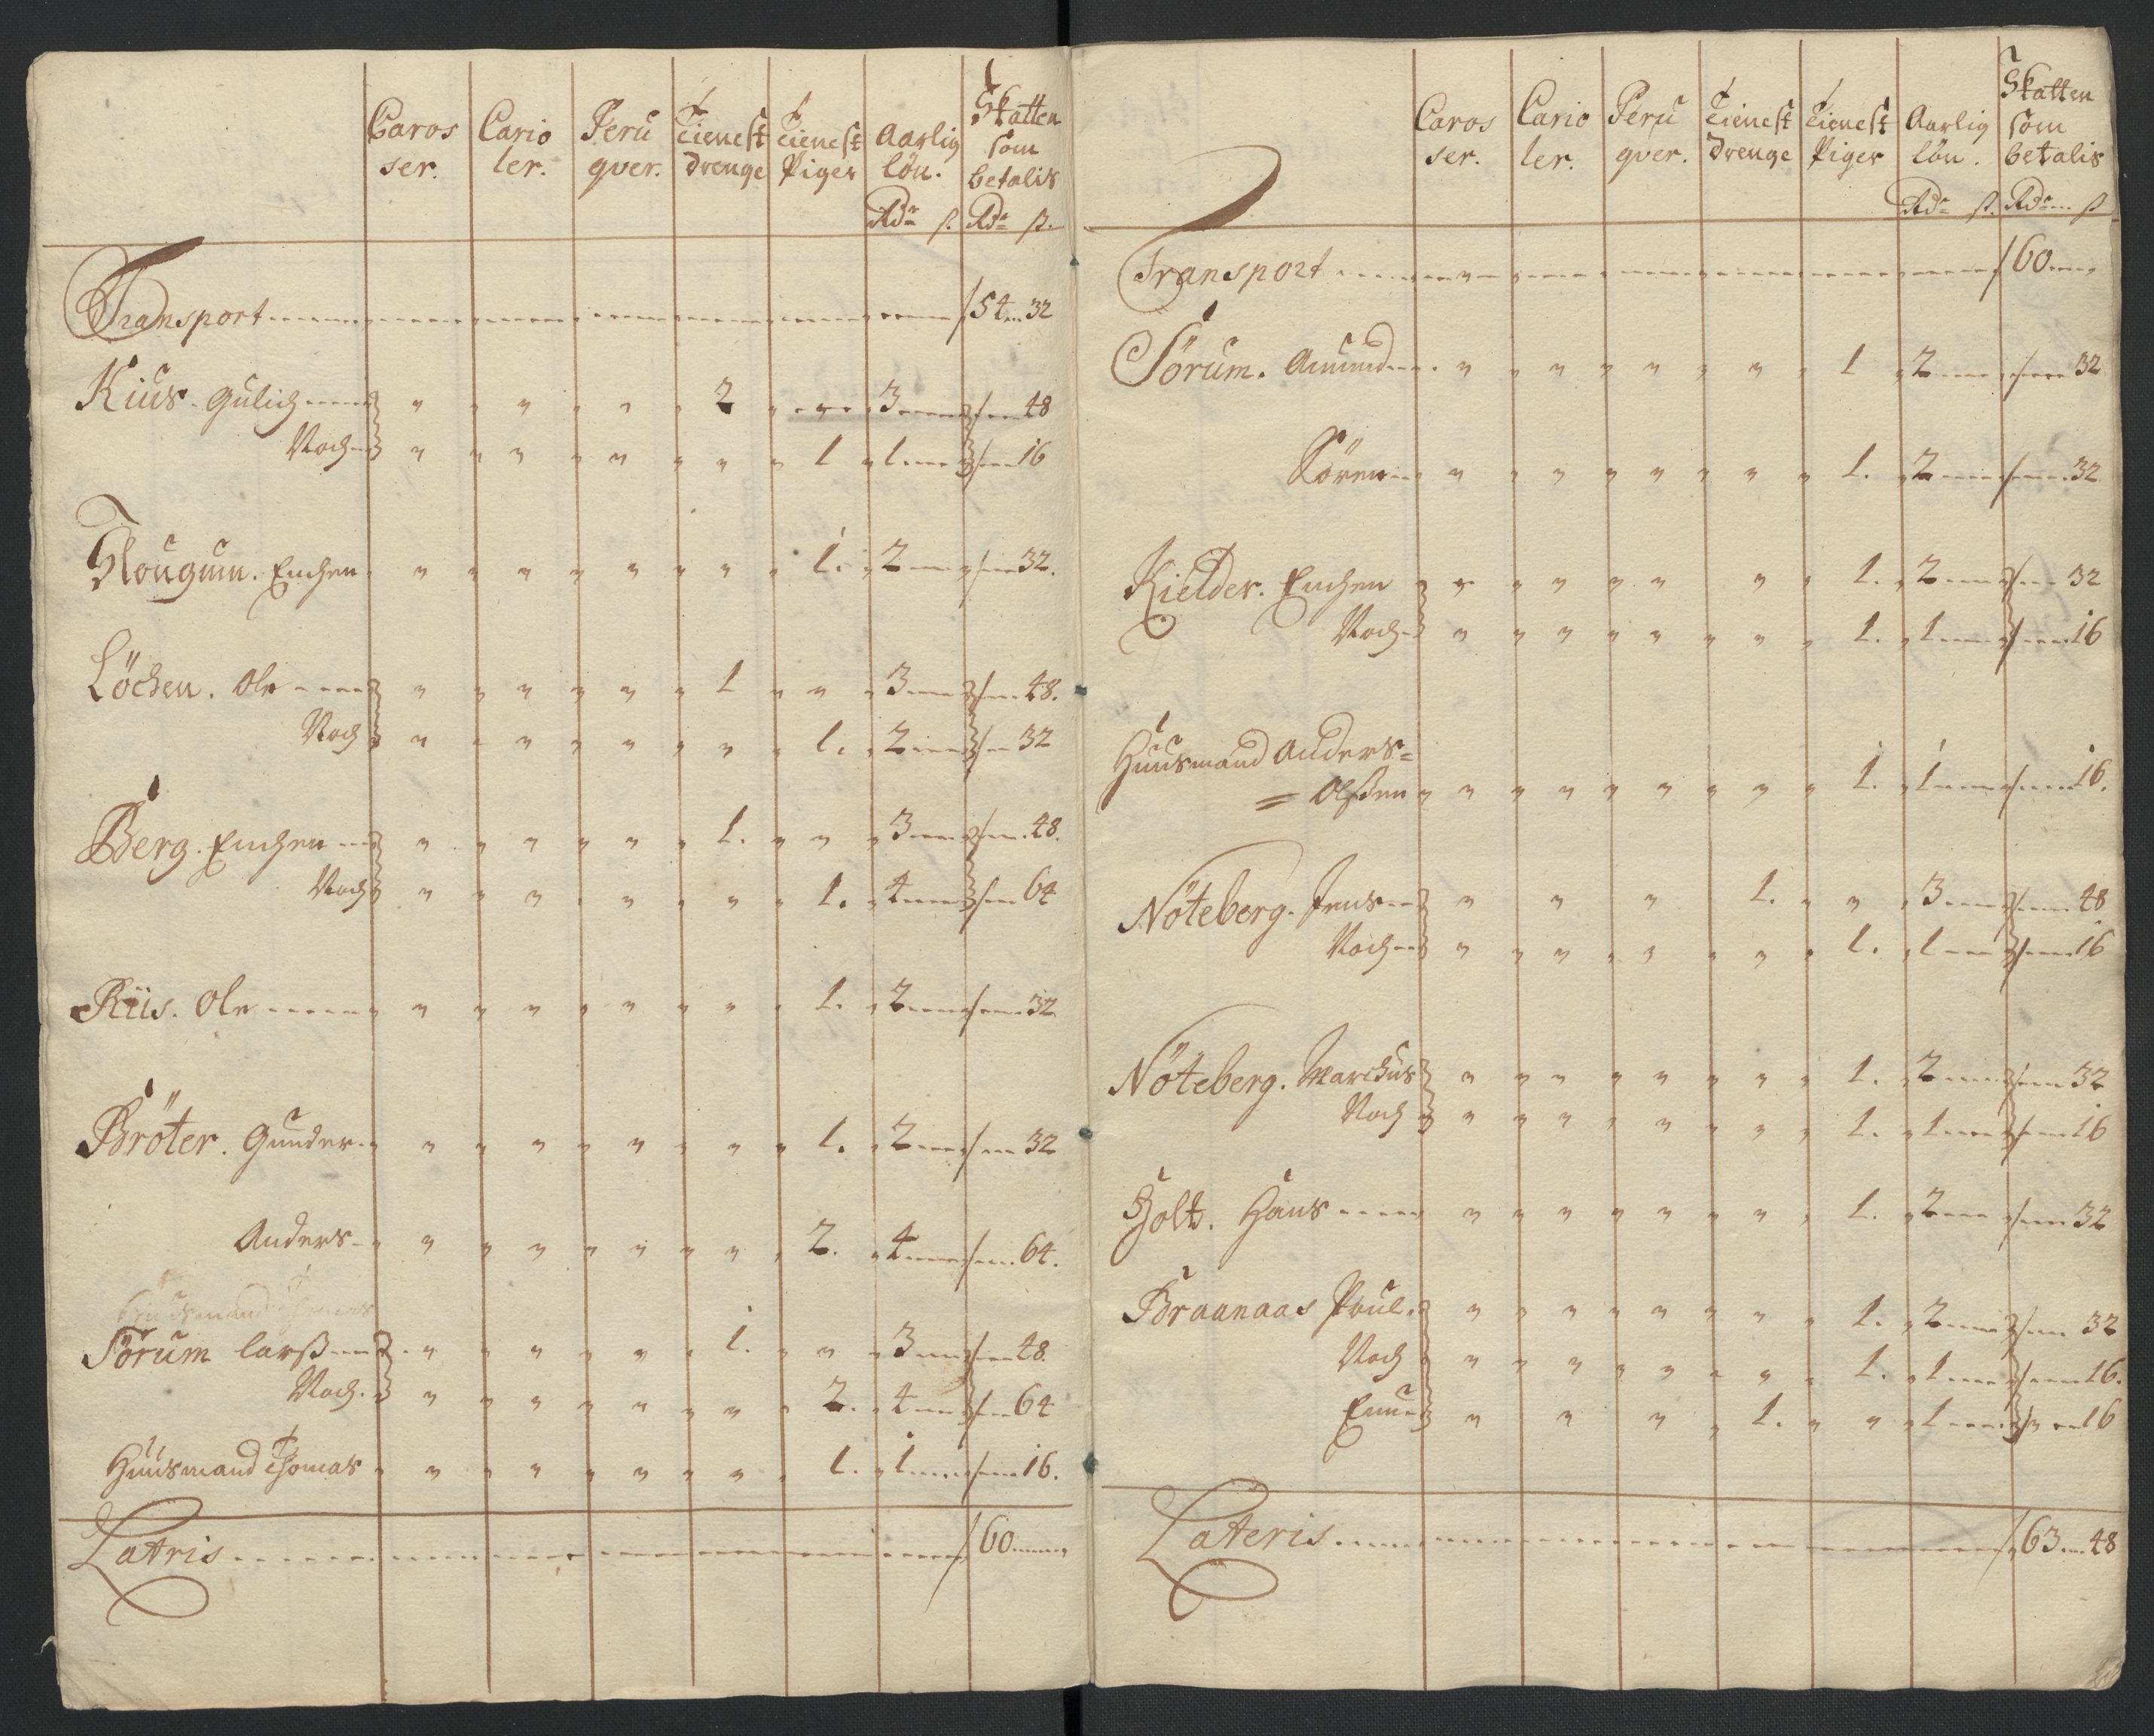 Caros ser. Cario ler. Peru qver. Tienest drenge Tienest Piger Aarlig lön. Skatten som betalis
Rdr ß. Rdr ß.
Transport 54 32
Kius. Gulich " " " 2 " 3 48
Noch " " " " 1 1 16
Hougum. Euchen " " " " 1. 2 32.
Löchen. Ole " " " 1 " 3 48.
Noch " " " " 1. 2 32
Berg. Euchen " " " 1. " 3 48.
Noch " " " " 1. 4 64
Riis. Ole " " " " 1. 2 32
Bröter. Gunder " " " " 1. 2 32
Anders " " " " 2. 4 64.
Huusmand Thomas
Sörum larß " " " 1. " 3 48.
Noch. " " " " 2. 4 64
Huusmand Thomas " " " " 1. 1 16.
Latris 60
Caros ser. Cario ler. Peru qver. Tienest drenge Tienest Piger Aarlig lön. Skatten som betalis
Rdr ß. Rdr ß
Transport 60
Sörum. Amund " " " " 1 2 32
Sören " " " " 1. 2 32
Kielder. Euchen " " " " 1. 2 32
Noch " " " " 1. 1 16
Huusmand Anders=
= Olßen " " " " 1. 1 16.
Nöteberg. Jens " " " 1. " 3 48
Noch " " " " 1. 1 16
Nöteberg. Marchus " " " " 1. 2 32
Noch " " " " 1. 1 16
Holt. Hans " " " " 1. 2 32
Braanaas Poul. " " " " 1. 2 32
Noch " " " " 1. 1 16.
Enu " " " 1. " 1 16
Lateris 63 48